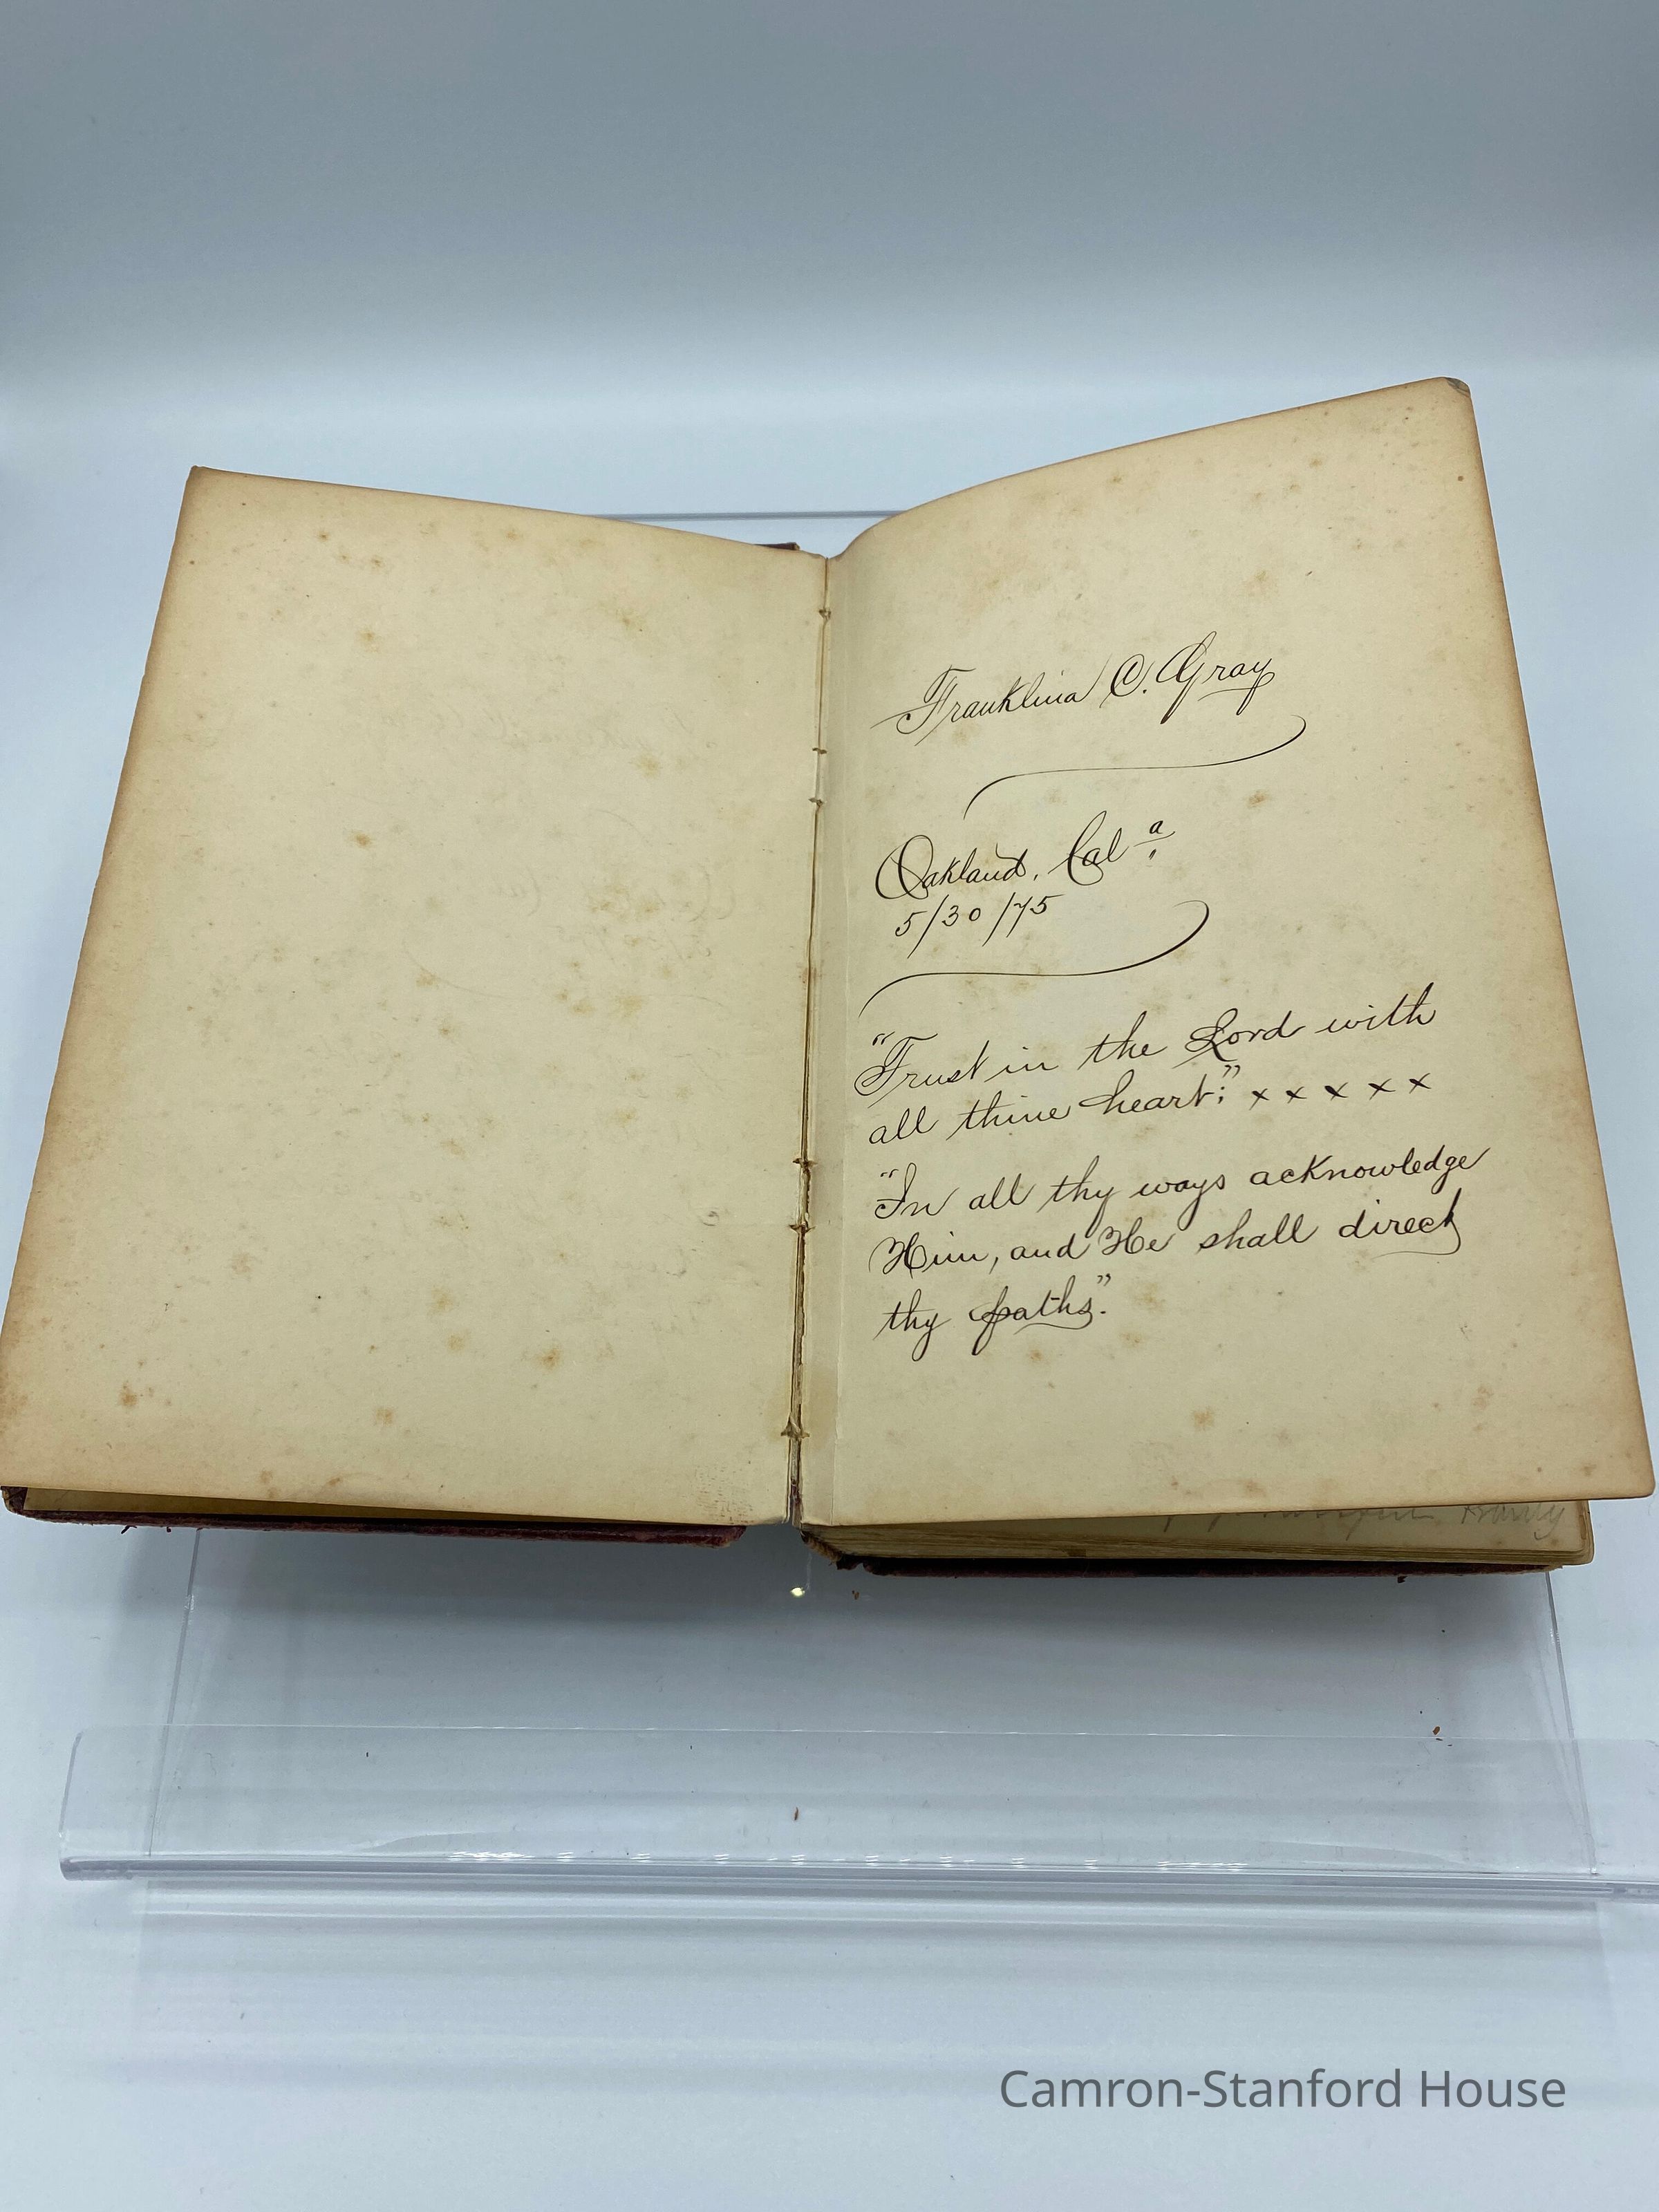 Franklina C. Gray
Oakland, Cal ª
5/30/75
"Trust in the Lord with
all thine heart;" x x x x x
"In all thy ways acknowledge
Him, and He shall direct
thy paths."
Camron-Stanford House